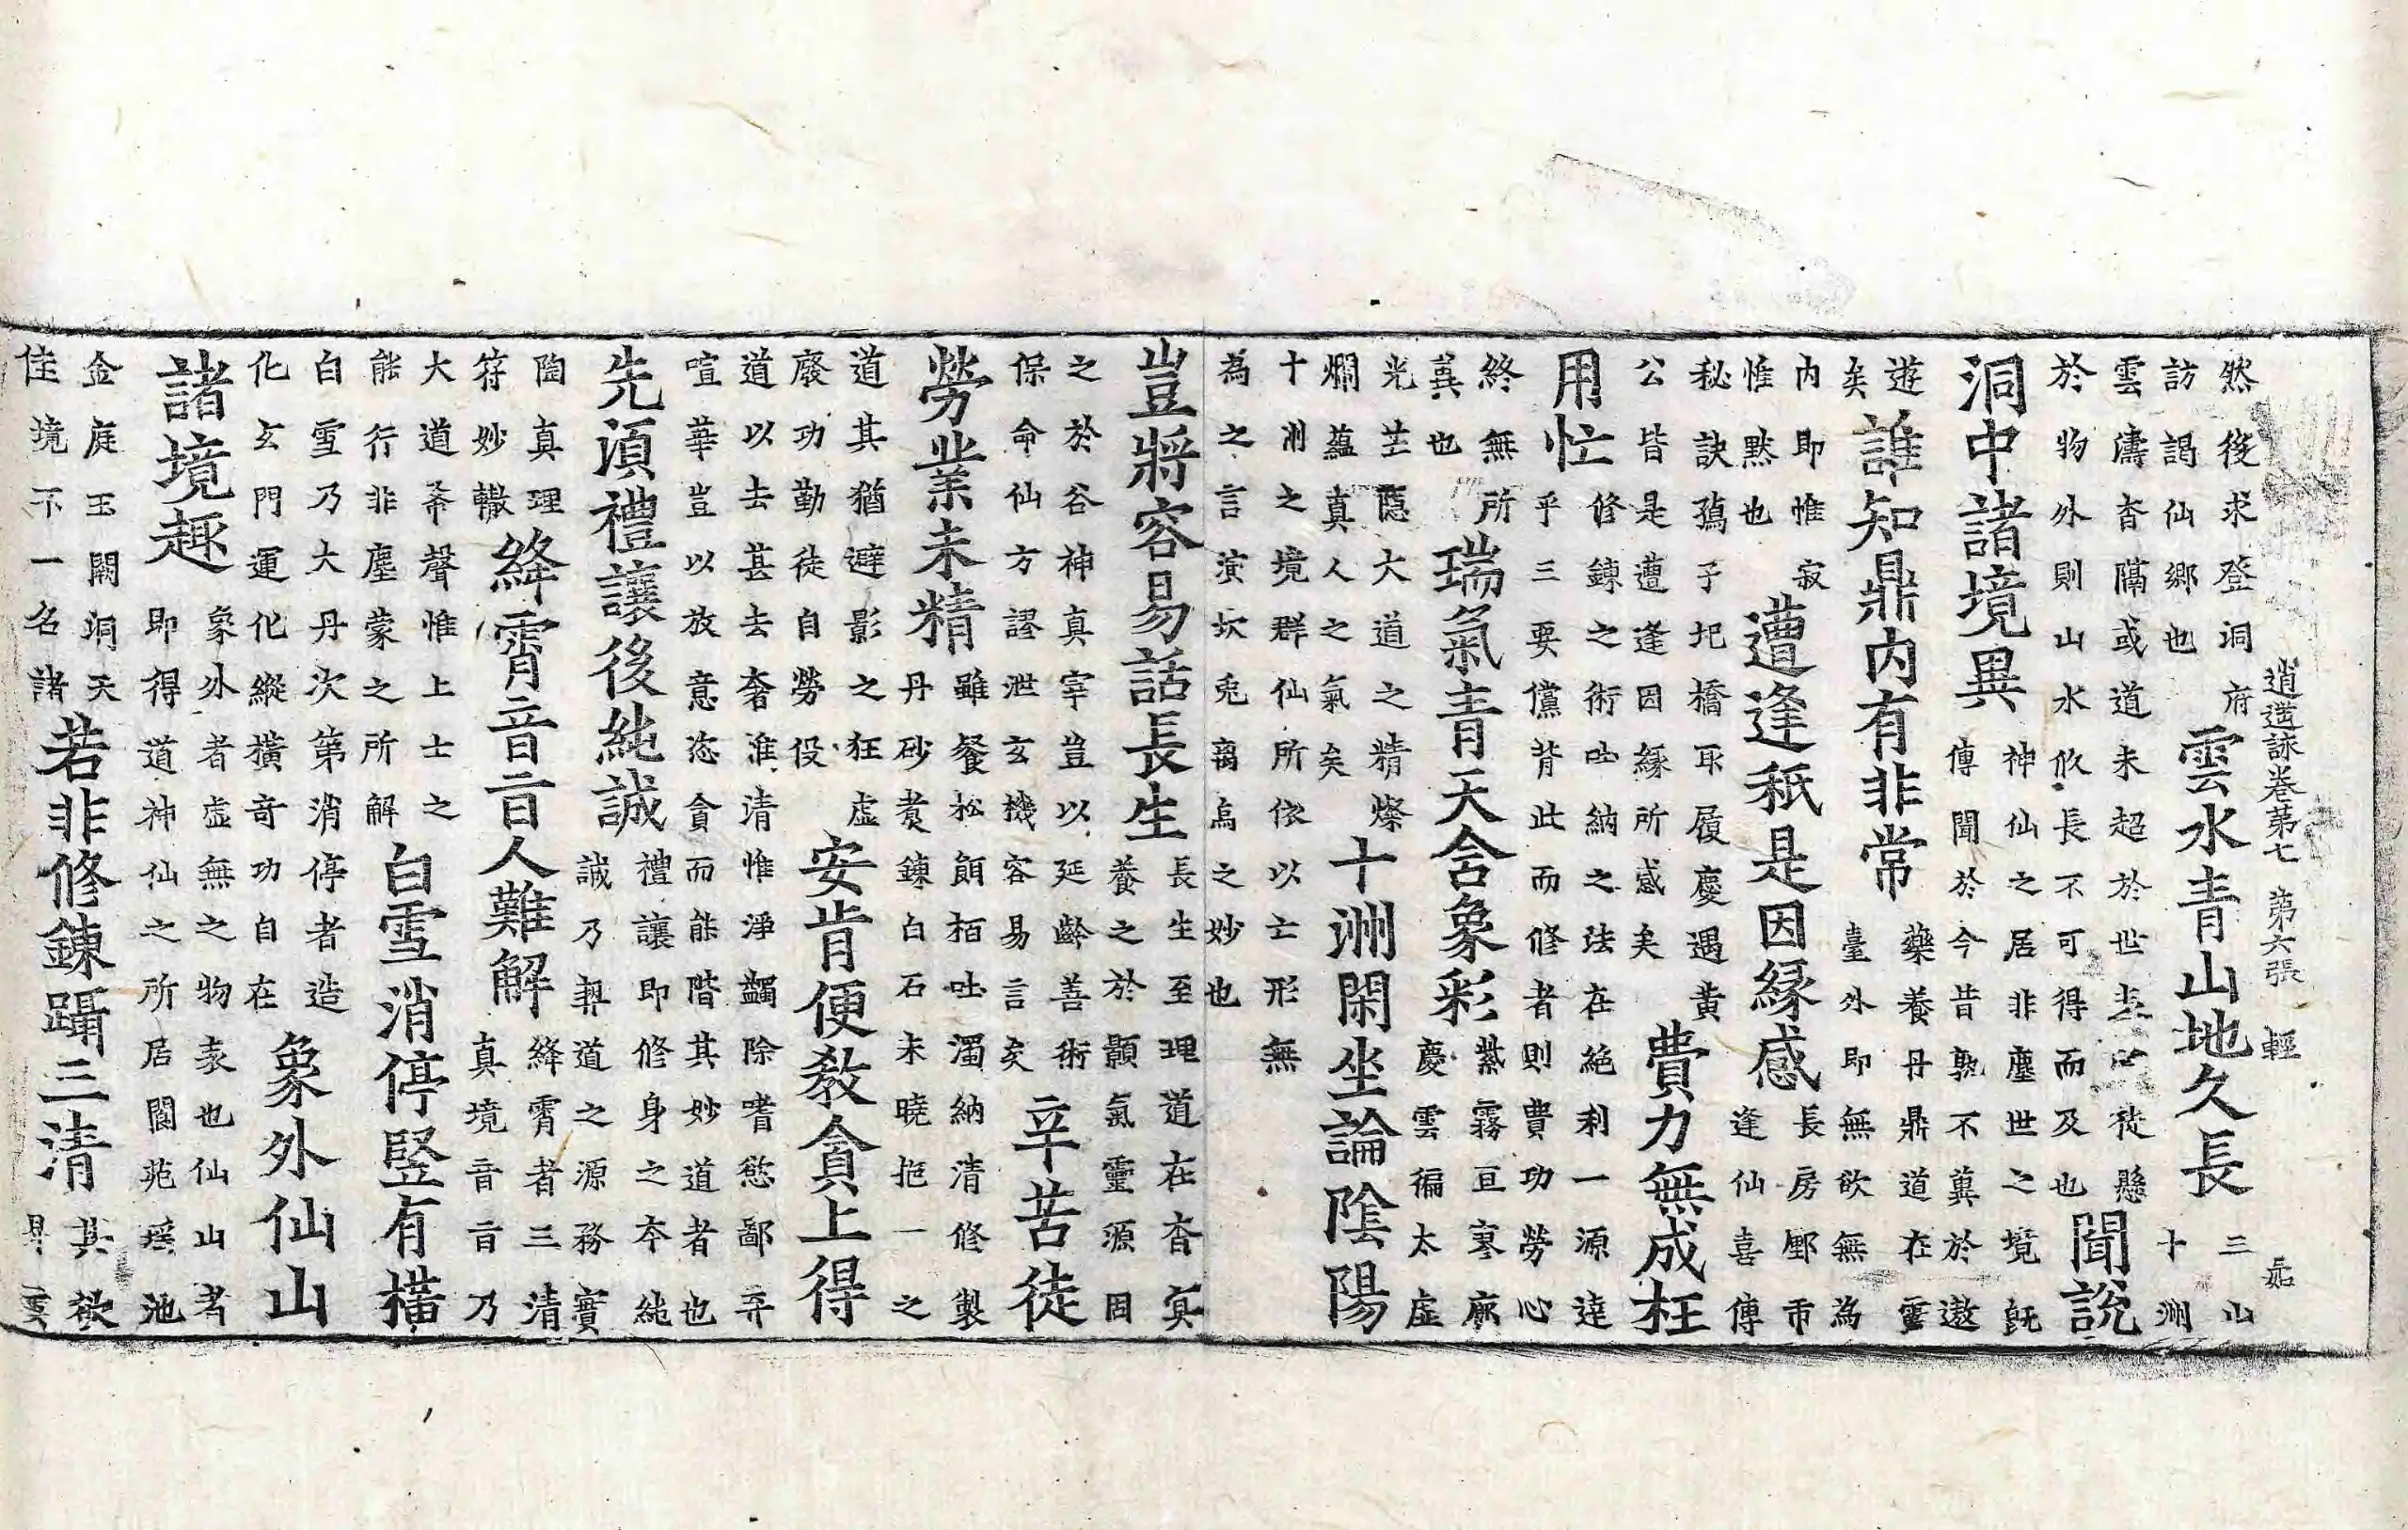 逍遥詠卷第七 第六張 輕
然後求登洞府
訪謁仙鄉也
雲水青山地久長
三山
十洲
雲濤杳隔或道未超於世表口徒懸
於物外則山水攸長不可得而及也
聞說
洞中諸境異
神仙之居非塵世之境旣
傳聞於今昔孰不冀於遨
遊
矣
誰知鼎内有非常
藥養丹鼎道在靈
臺外即無欲無為
内即惟寂
惟默也
遭逢秖是因緣感
長房鄽市
逢仙喜傳
秘訣孺子圯橋取履慶遇黄
公皆是遭逢因緣所感矣
費力無成枉
用忙
修鍊之術吐納之法在絶利一源達
乎三要儻背此而修者則費功勞心
終無所
冀也
瑞氣青天含象彩
紫霧亘寥廓
慶雲徧太虛
光芒隱大道之精燦
爛蘊真人之氣矣
十洲閑坐論陰陽
十洲之境群仙所依以亡形無
為之言演坎兎离烏之妙也
豈將容易話長生
長生至理道在杳冥
養之於顥氣靈源固
之於谷神真宰豈以延齡善術
保命仙方謬泄玄機容易言矣
辛苦徒
勞業未精
雖餐松餌栢吐濁納清修製
丹砂煑鍊白石未曉抱一之
道其猶避影之狂虛
廢功勤徒自勞役
安肯便敎貪上得
道以去甚去奢淮清惟淨蠲除嗜慾鄙弃
喧華豈以放意恣貪而能階其妙道者也
先湏禮讓後純誠
禮讓即修身之夲純
誠乃契道之源務實
陶真理
符妙轍
絳霄音旨人難解
絳霄者三清
真境音旨乃
大道希聲惟上士之
能行非塵蒙之所解
白雪消停竪有橫
白雪乃大丹次第消停者造
化玄門運化縱橫奇功自在
象外仙山
諸境趣
象外者虛無之物表也仙山者
即得道神仙之所居閬苑瑶池
金庭玉闕洞天
佳境不一名諸
若非修鍊躡三清
其欲
昇